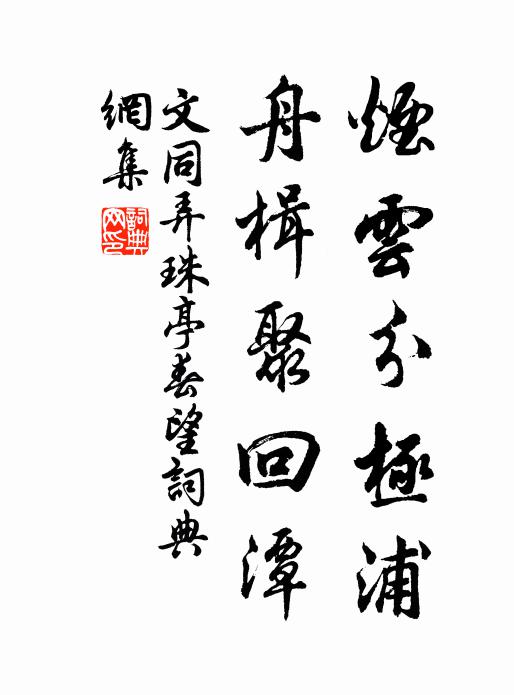 煙雲分極浦
舟楫聚回潭
文同弄珠亭春望詞典
網集
詞典网印